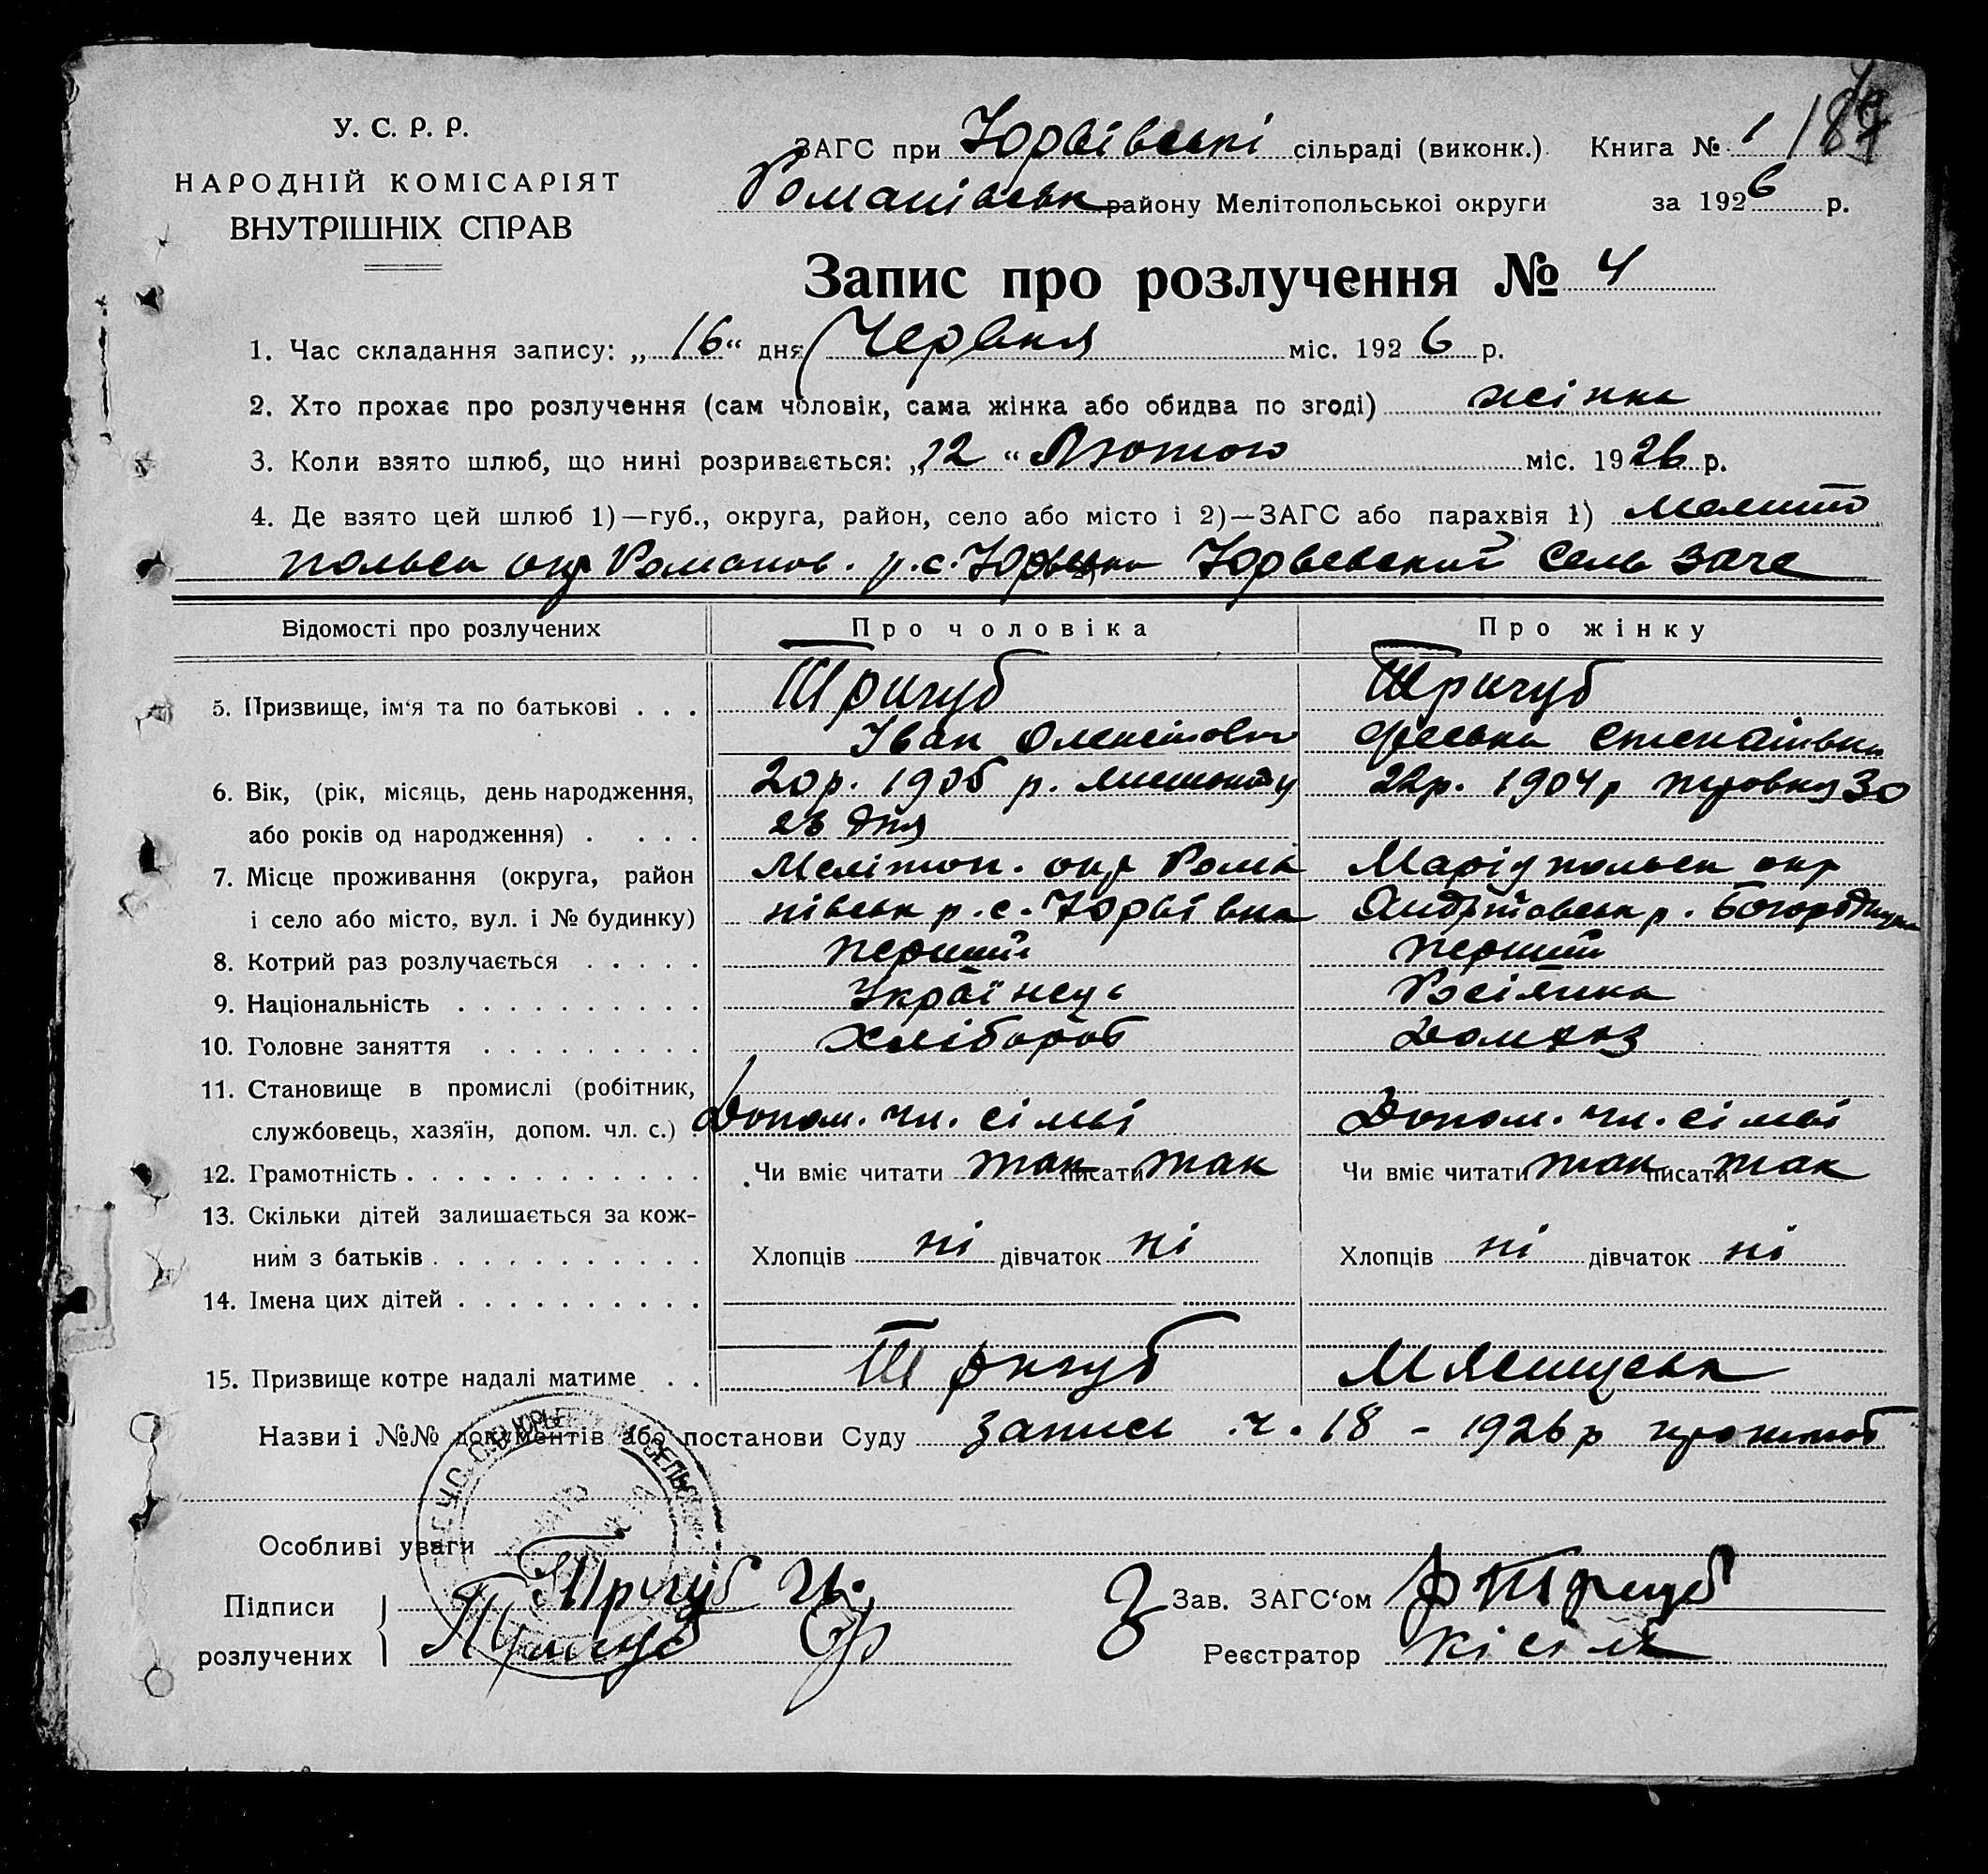 У. С. Р. Р.
НАРОДНІЙ КОМІСАРІЯТ
ВНУТРІШНІХ СПРАВ
ЗАГС при Юрвівські сільраді (виконк.) Книга № 1
Романівськ району Мелітопольської округи за 1926 р.
Запис про розлучення № 4
1. Час складання запису: „16“ дня Червня міс. 1926 р.
2. Хто прохає про розлучення (сам чоловік, сама жінка або обидва по згоді) жінка
3. Коли взято шлюб, що нині розривається: „12“ Лютого міс. 1926 р.
4. Де взято цей шлюб 1)—губ., округа, район, село або місто і 2)—ЗАГС або парахвія 1) Мелито
польск окр Романов. р. с. Юрвевский Сель Загс
Відомості про розлучених Про чоловіка Про жінку
5. Призвище, ім‘я та по батькові . . . Тригуб Тригуб
Іван
6. Вік, (рік, місяць, день народження, 20 р. 1905 р. листопаду 22р. 1904 р 30
або років од народження) . . . . . 23 дня
7. Місце проживання (округа, район Мелітоп. окр Рома Маріупольск окр
і село або місто, вул. і № будинку) нівськ р. с. Юрвівка р.
8. Котрий раз розлучається . . . . . перший перший
9. Національність . . . . . . . . . . Українець Росіянка
10. Головне заняття . . . . . . . . . Хлібороб Домхаз
11. Становище в промислі (робітник,
службовець, хазяїн, допом. чл. с.) . Допом. чл. сімві Допом. чл. сімві
12. Грамотність . . . . . . . . . . . . . Чи вміє читати так писати так Чи вміє читати так писати так
13. Скільки дітей залишається за кож-
ним з батьків . . . . . . . . . . . Хлопців ні дівчаток ні Хлопців ні дівчаток ні
14. Імена цих дітей . . . . . . . . . .
15. Призвище котре надалі матиме . . Тригуб
Назви і №№ документів або постанови Суду Запись ч. 18 – 1926 р
Особливі уваги
Підписи Тригуб Ів. Зав. ЗАГС‘ом Ф Тригуб
розлучених Тригуб Ф Реєстратор